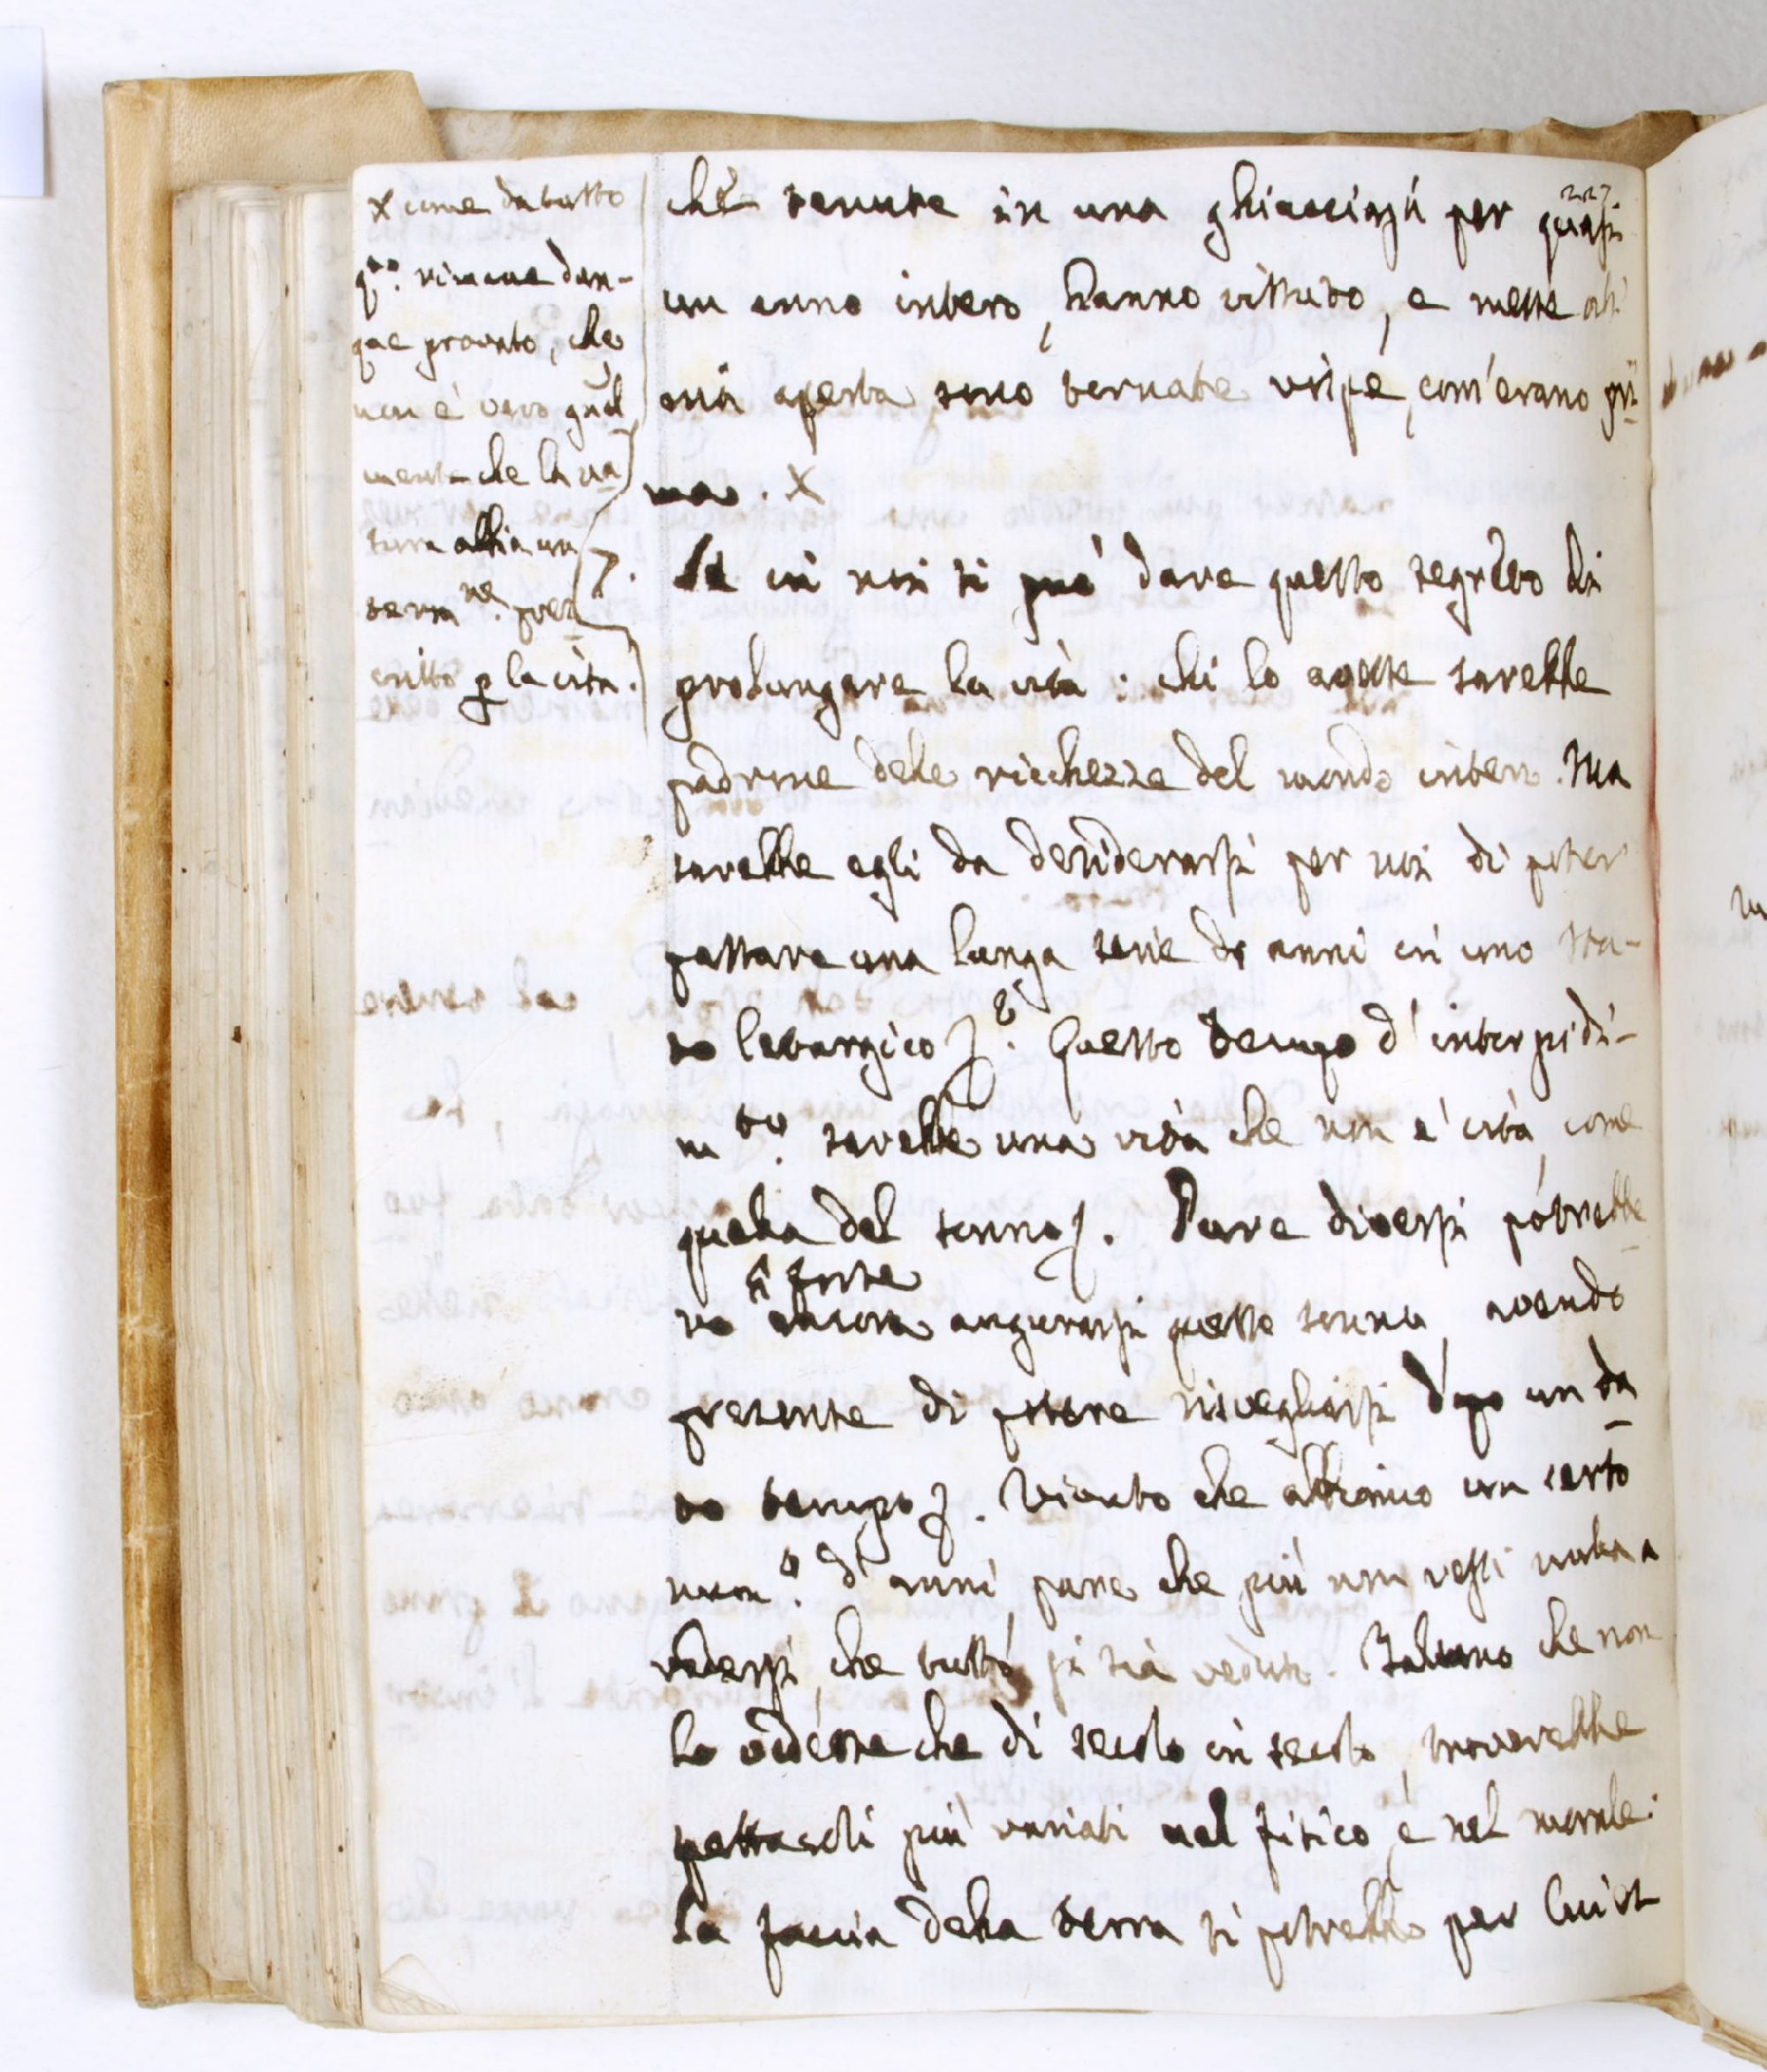 227
che tenute in una ghiacciaja per quasi
un anno intero, hanno vissuto, e messe all'
aria aperta sono tornate vispe, com'erano pri-
ma. X
Se in noi si può dare questo segreto di
prolungare la vita: chi lo avesse sarebbe
padrone delle ricchezze del mondo intero. Ma
sarebbe egli da desiderarsi per noi di poter
passare una lunga serie di anni in uno sta-
to letargico? Questo tempo d'intorpidi-
mto. sarebbe una vita che non è vita come
quella del sonno. Pure diversi potrebbe-
si forse
ro augurarsi questo sonno, avendo
presente di potere risvegliarsi dopo un da-
to tempo. Vissuto che abbiamo un certo
num.o d'anni, pare che più non resti nulla a
vedersi, che tutto si sia veduto. Taluno che non
lo vedesse che di secolo in secolo, troverebbe
spettacoli più variati nel fisico, e nel morale:
la faccia della terra si potrebbe per lui
X come da tutto
q.to rimane dun-
que provato, che
non è vero gnãl
mente che la na-
tura abbia un
termine pres-
critto p la vita.